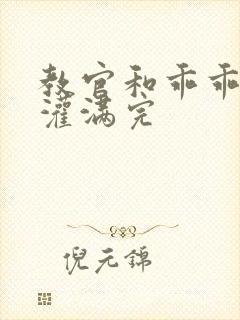 教官和乖乖
灌满完
倪元锦